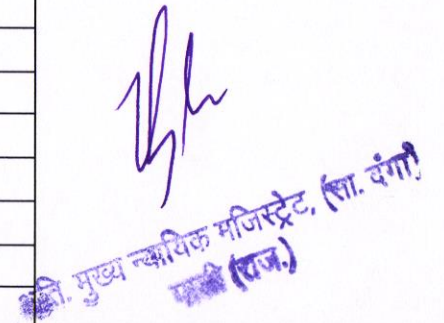 अति. मुख्य न्यायिक मजिस्ट्रेट, (सा. दंगा)
पाली (राज.)